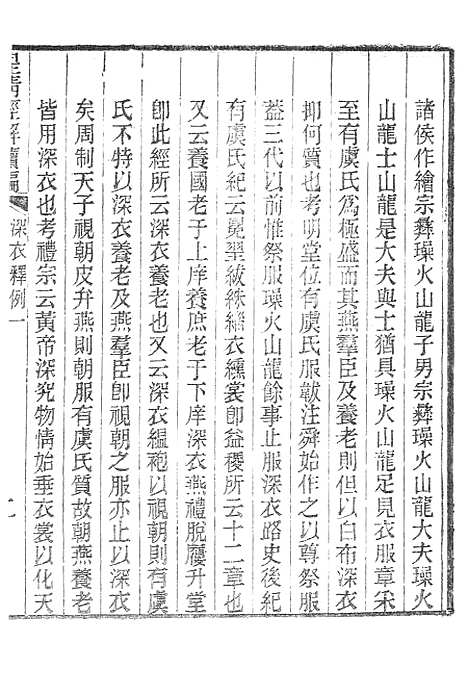 諸侯作繪宗彝璪火山龍子男宗彝璪火山龍大夫璪火
山龍士山龍是大夫與士猶具璪火山龍足見衣服章采
至有虞氏為極盛而其燕羣臣及養老則但以白布深衣
抑何質也考明堂位有虞氏服韍注舜始作之以尊祭服
葢三代以前惟祭服璪火山龍餘事止服深衣路史後紀
有虞氏紀云冕斝紱絺繡衣纁裳卽益稷所云十二章也
又云養國老于上庠養庶老于下庠深衣燕禮脫屨升堂
卽此經所云深衣養老也又云深衣緼袍以視朝則有虞
氏不特以深衣養老及燕羣臣卽視朝之服亦止以深衣
矣周制天子視朝皮弁燕則朝服有虞氏質故朝燕養老
皆用深衣也考禮宗云黃帝深究物情始垂衣裳以化天
皇清經解續編
深衣釋例一